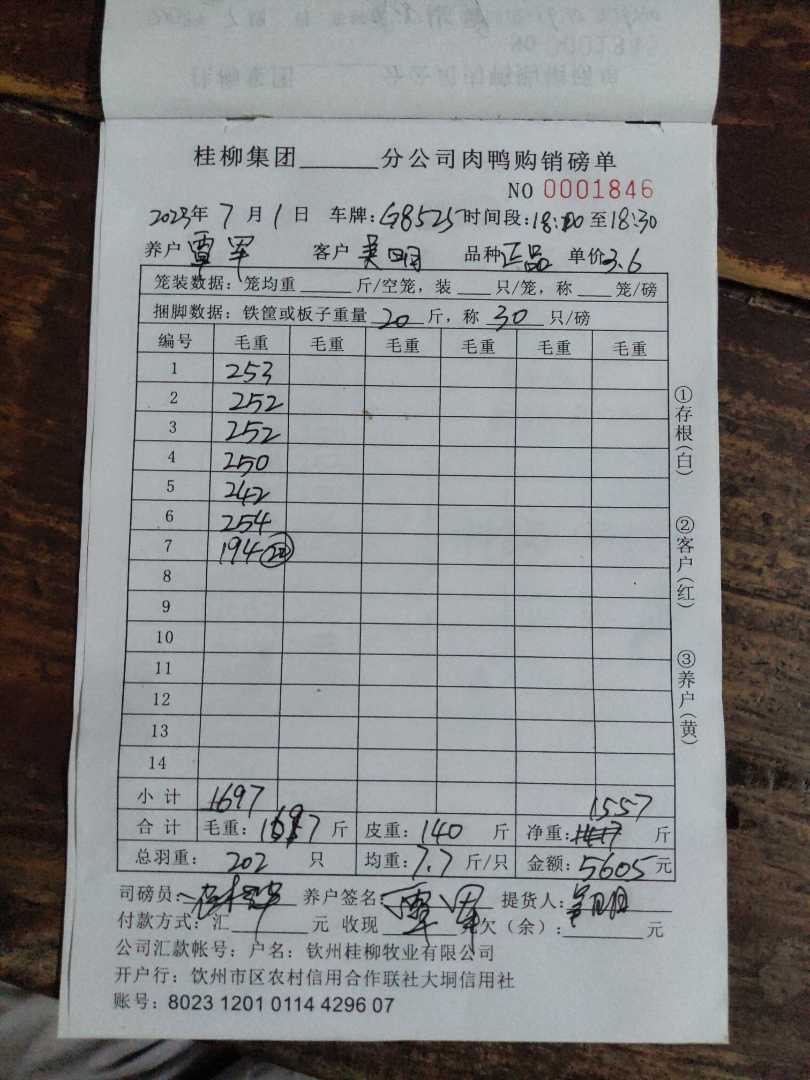 桂柳集团______分公司肉鸭购销磅单
NO 0001846
2023年 7 月 1 日 车牌:G8525 时间段:18:00 至18:30
养户 覃军 客户 吴明 品种 正品 单价 3.6
笼装数据:笼均重______斤/空笼,装____只/笼,称____笼/磅
捆脚数据:铁筐或板子重量 20 斤,称 30 只/磅
编号 毛重 毛重 毛重 毛重 毛重 毛重
1 253
2 252
3 252
4 250
5 242
6 254
7 194 22
8
9
10
11
12
13
14
小 计 1697 1557
合 计 毛重:1697 斤 皮重:140 斤 净重: 斤
总羽重: 202 只 均重:7.7 斤/只 金额:5605元
司磅员: 养户签名:覃军 提货人:吴明
付款方式:汇______元 收现______ 欠(余):______元
公司汇款帐号:户名:钦州桂柳牧业有限公司
开户行:饮州市区农村信用合作联社大垌信用社
账号:8023 1201 0114 4296 07
①存根(白)
②客户(红)
③养户(黄)